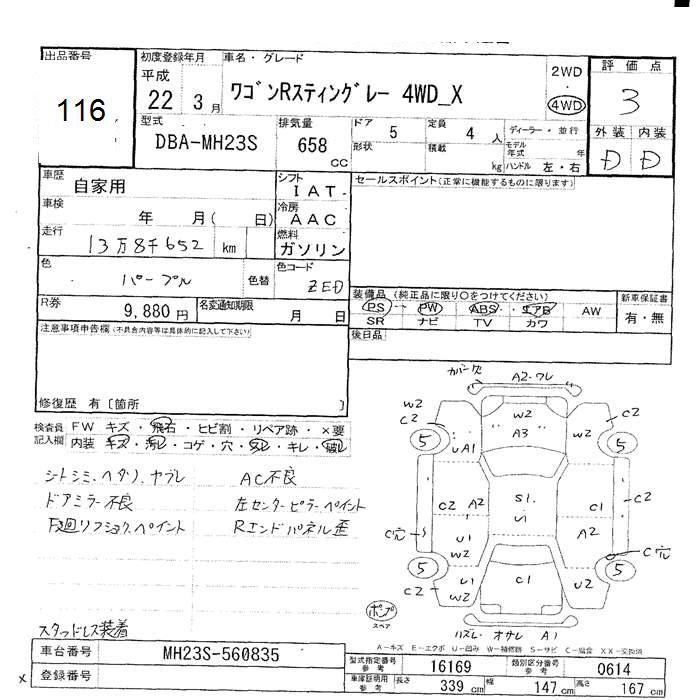 出品番号 初度登録年月 車名・グレード 評価点
116 平成 22 3月 ワゴンRスティングレー 4WD_X 2WD 4WD 3
型式 DBA-MH23S 排気量 658 CC ドア 5 定員 4 人 ディーラー・並行 外装 内装
形状 積載 kg モデル年式 年 ハンドル 左・右 D D
車歴 自家用 シフト IAT セールスポイント(正常に機能するものに限ります)
車検 年 月( 日) 冷房 AAC
走行 13万8千652 km 燃料 ガソリン
色 パープル 色替 色コード ZED
R券 9,880円 名変通知期限 月 日 装備品 (純正品に限り○をつけてください) 新車保証書
PS PW ABS エアB AW 有・無
SR ナビ TV カワ
注意事項申告欄(不具合内容等は具体的に記入して下さい) 後日品
修復歴 有 [箇所 ]
検査員記入欄 FW キズ・飛石・ヒビ割・リペア跡・×要
内装 キズ・汚レ・コゲ・穴・スレ・キレ・破レ
シトシミ、ヘタリ、ヤブレ AC不良
ドアミラー不良 左センターピラーペイント
下廻リフショク、ペイント Rエンドパネル歪
A2・ワレ
W2 C2 W2 C2
5 UA1 A3 W2 5
C2 A2 S1 U1 C1 C2
C穴 U1 W2 A2 C穴
5 U1 W2 C1 U2 5
C2
ポンプ
スペア ハズレ オサレ A1
スタッドレス装着
A-キズ E-エクボ U-凹み W-補修跡 S-サビ C-腐食 XX-交換済
車台番号 MH23S-560835 型式指定番号 参考 16169 類別区分番号 参考 0614
× 登録番号 車庫証明用 参考 長さ 339 cm 幅 147 cm 高さ 167 cm